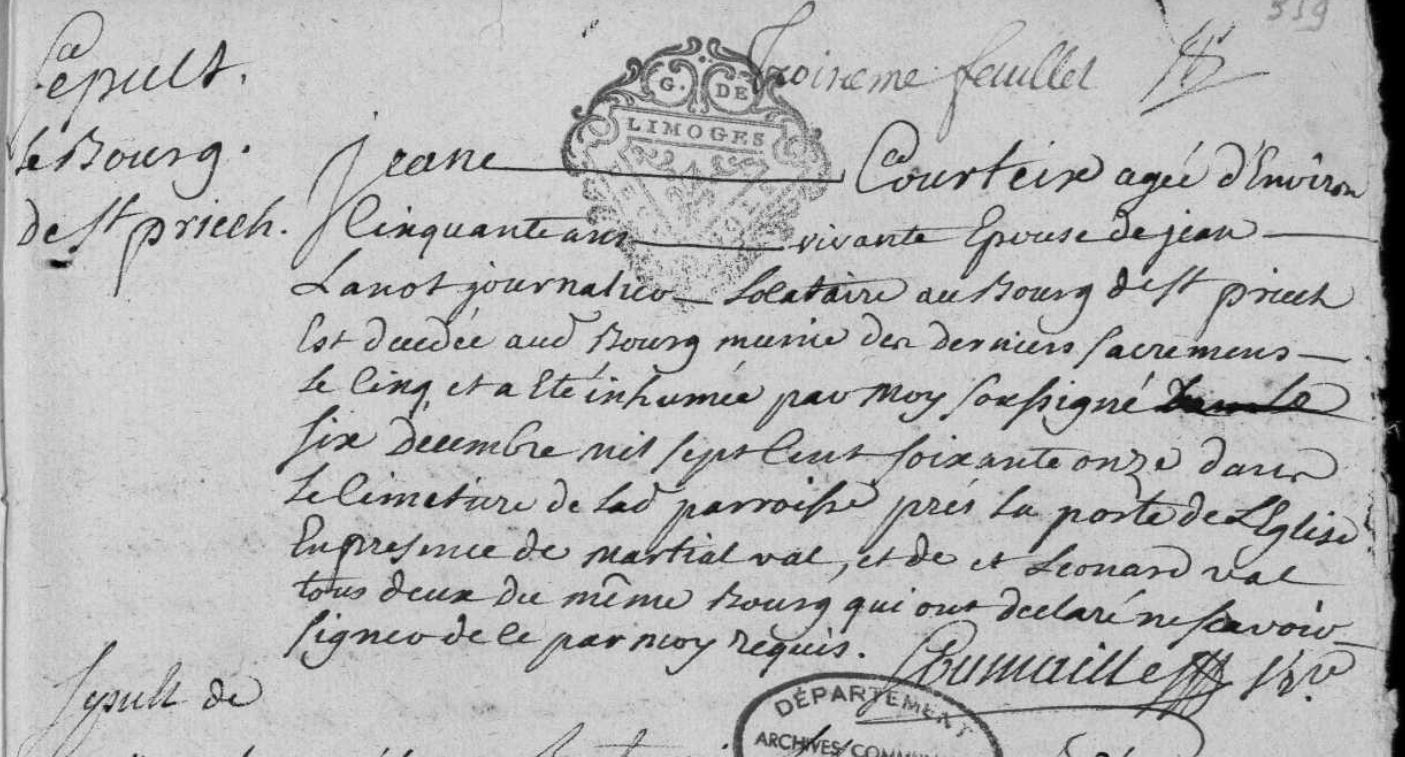 319
Troixeme feuillet
G. DE
LIMOGES
Sépult.
le Bourg
de St priech.
jeane Courteix agée d'Environ
Cinquante ans vivante Epouse de jean
Lanot journalier Locataire au Bourg de St priech
Est decedée aud Bourg munie des derniers sacremens
le cinq et a Eté inhumée par moy soussigné
six décembre mil sept cent soixante onze dans
le Cimetiere de lad parroisse prés la porte de L'Eglise
En presence de martial val, et de et Leonard val
tous deux du même Bourg qui ont declaré ne scavoir
signer de ce par moy requis.
Sepult de
DÉPARTEMENT
ARCHIVES COMMUN